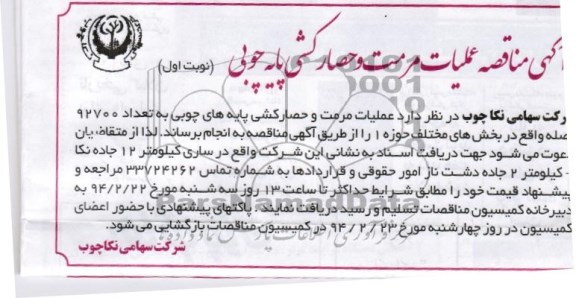 آگهی مناقصه عملیات مرمت و حصارکشی پایه چوبی (نوبت اول)
شرکت سهامی نکا چوب در نظر دارد عملیات مرمت و حصارکشی پایه های چوبی به تعداد ۹۲۷۰۰
اصله واقع در بخش های مختلف حوزه ۱ را از طریق آگهی مناقصه به انجام برساند. لذا از متقاضیان
دعوت می شود جهت دریافت اسناد به نشانی این شرکت واقع در ساری کیلومتر ۱۲ جاده نکا
- کیلومتر ۲ جاده دشت ناز امور حقوقی و قراردادها به شماره تماس ۳۳۷۲۴۲۶۲ مراجعه و
پیشنهاد قیمت خود را مطابق شرایط حداکثر تا ساعت ۱۳ روز سه شنبه مورخ ۹۴/۲/۲۲ به
دبیرخانه کمیسیون مناقصات تسلیم و رسید دریافت نمایند. پاکتهای پیشنهادی با حضور اعضای
کمیسیون در روز چهارشنبه مورخ ۹۴/۲/۲۳ در کمیسیون مناقصات بازگشایی می شود.
شرکت سهامی نکاچوب
ParsNamadData